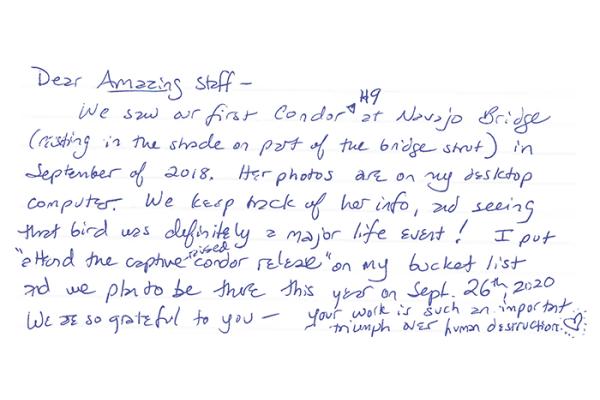 Dear Amazing Staff –
We saw our first Condor H9 at Navajo Bridge
(resting in the shade on part of the bridge strut) in
September of 2018. Her photos are on my desktop
computer. We keep track of her info, and seeing
that bird was definitely a major life event! I put
"attend the captive raised condor release" on my bucket list
and we plan to be there this year on Sept. 26th, 2020
We are so grateful to you – your work is such an important
triumph over human destruction. ♡